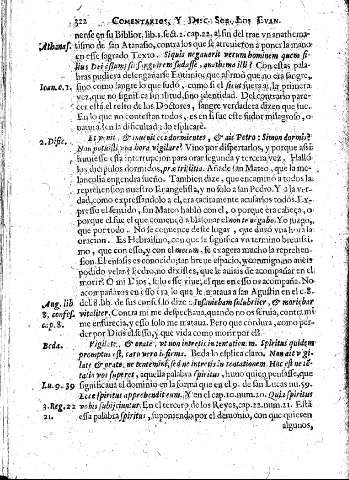 322 COMENTARIOS, Y DISC. SOB. LOS EVAN.
nense en su Bibliot. lib. 1. sect. 2. cap. 22. al fin del trae vn anathema-
Athanas. tismo de san Atanasio, contra los que se atreuieron à poner la mano
en esse sagrado Texto. Siquis negauerit verum hominem quem fi-
lius Dei assumpsit sanguinem sudasse, anathema illi? Con estas pala-
bras pudiera desengañarse Eutimio, que afirmò que no era sangre,
Ioan. c. 1. sino como sangre lo que sudò, como si el sicut fuera al, la primera
vez, que no significa similitud, sino identidad. Del contrario pare-
cer està el resto de los Doctores, sangre verdadera dizen que fue.
En lo que no contestan todos, es en si fue este sudor milagroso, o
natural,
2. Disic. Et venit, & inuenit eos dormientes, & ait Petro: Simon dormis?
Non potuisti vna hora vigilare? Vino por dispertarlos, y porque assi
huuiesse esta interrupcion para orar segunda y tercera vez, Hallò
los dicipulos dormidos, præ tristitia. Añade san Mateo, que la me-
lancolia engendra sueño. Tambien dize, que encaminò a todos la
reprehension nuestro Euangelista, y no solo a san Pedro. Y a la ver-
dad, como expressandolo a el, era tacitamente acusarlos todos. Ex-
presso el sentido, san Mateo hablò con el, o porque era cabeça, o
porque el fue el que començò a blasonar: etiamsi non te negabo. Yo juzgo,
que por todo. No se comence deste lugar, que durò vna hora la
oracion. Es Hebraismo, con que se significa vn termino breuissi-
mo, que con esso, y con el mecum, se exagera mucho la reprehen-
sion. El enfasis es conocido; tan breue espacio, y conmigo no aueis
podido velar? Pedro, no dixistes, que le auiais de acompañar en el
morir? O mi Dios, solo esse viue, el que en esso os acompaña. No
acompañaros en esso era lo que le mataua a san Agustin en el c. 8.
Aug. lib. del 8. lib. de sus confess. lo dize: Insaniebam salubriter, & moriebar
8. confes. vitaliter. Contra mi me despechaua, quando no os seruia, contra mi
c. p. 8. me enfurecia, y esso solo me mataua. Pero que cordura, como per-
der por Dios el sesso, y que vida como morir por el?
Beda. Vigilate, & orate, vt non intretis in tentationem. Spiritus quidem
promptus est, caro vero infirma. Beda lo esplica claro. Non ait vigi-
late & orate, ne tentemini, sed ne intretis in tentationem. Hoc est ne ten-
tatio vos superet, aquella palabra spiritus, huuo quien pensasse, que
Lu. 9. 39 significaua el dominio en la forma que en el 9. de san Lucas nu. 59.
Ecce spiritus apprehendit eum, Y en el cap. 10. num. 20. Quia spiritus
3. Reg. 22 vobis subijciuntur. En el tercero de los Reyes, cap. 22. num. 21. Està
21. essa palabra spiritus, suponiendo por el demonio, con que quieren
algunos,